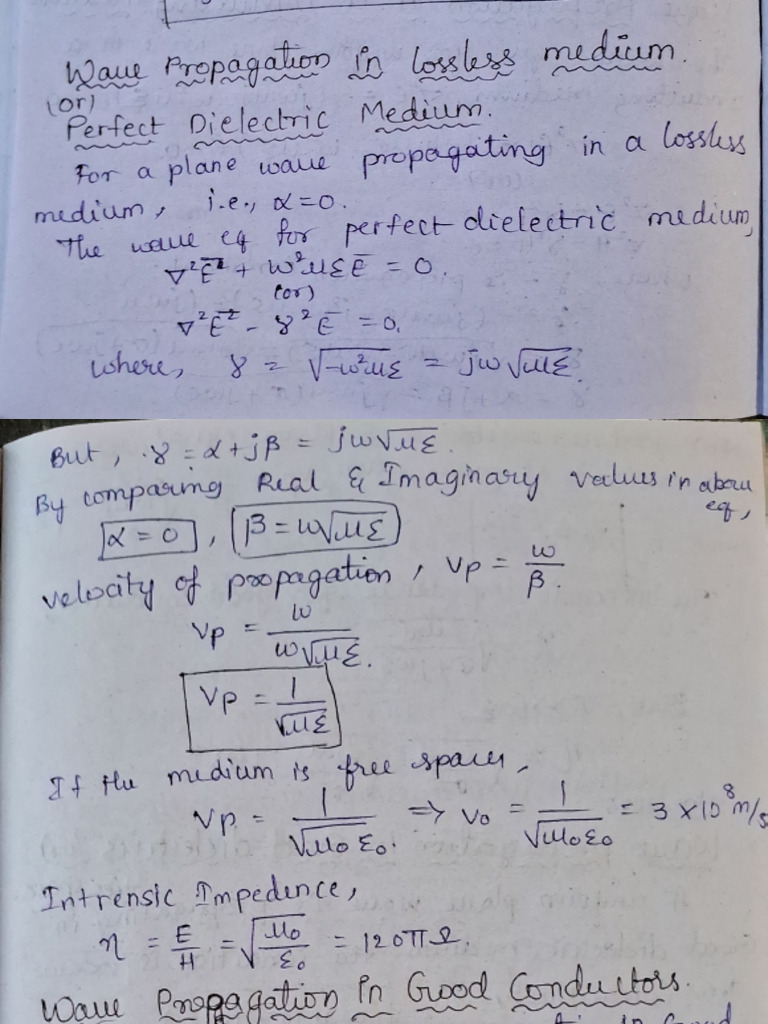 Wave Propagation in lossless medium.
(or)
Perfect Dielectric Medium.
For a plane wave propagating in a lossless
medium, i.e., α=0.
The wave eq for perfect dielectric medium,
∇²E̅² + ω²με E̅ = 0.
(or)
∇²E̅² - γ²E̅ = 0.
where, γ = √-ω²με = jω√με.
But, γ = α+jβ = jω√με.
By comparing Real & Imaginary values in above
eq,
α = 0, β = ω√με
velocity of propagation, Vp = ω/β.
Vp = ω/ω√με.
Vp = 1/√με
If the medium is free space,
Vp = 1/√μ₀ε₀. ⇒ V₀ = 1/√μ₀ε₀ = 3×10⁸ m/s
Intrensic Impedence,
η = E/H = √μ₀/ε₀ = 120πΩ.
Wave Propagation in Good Conductors.